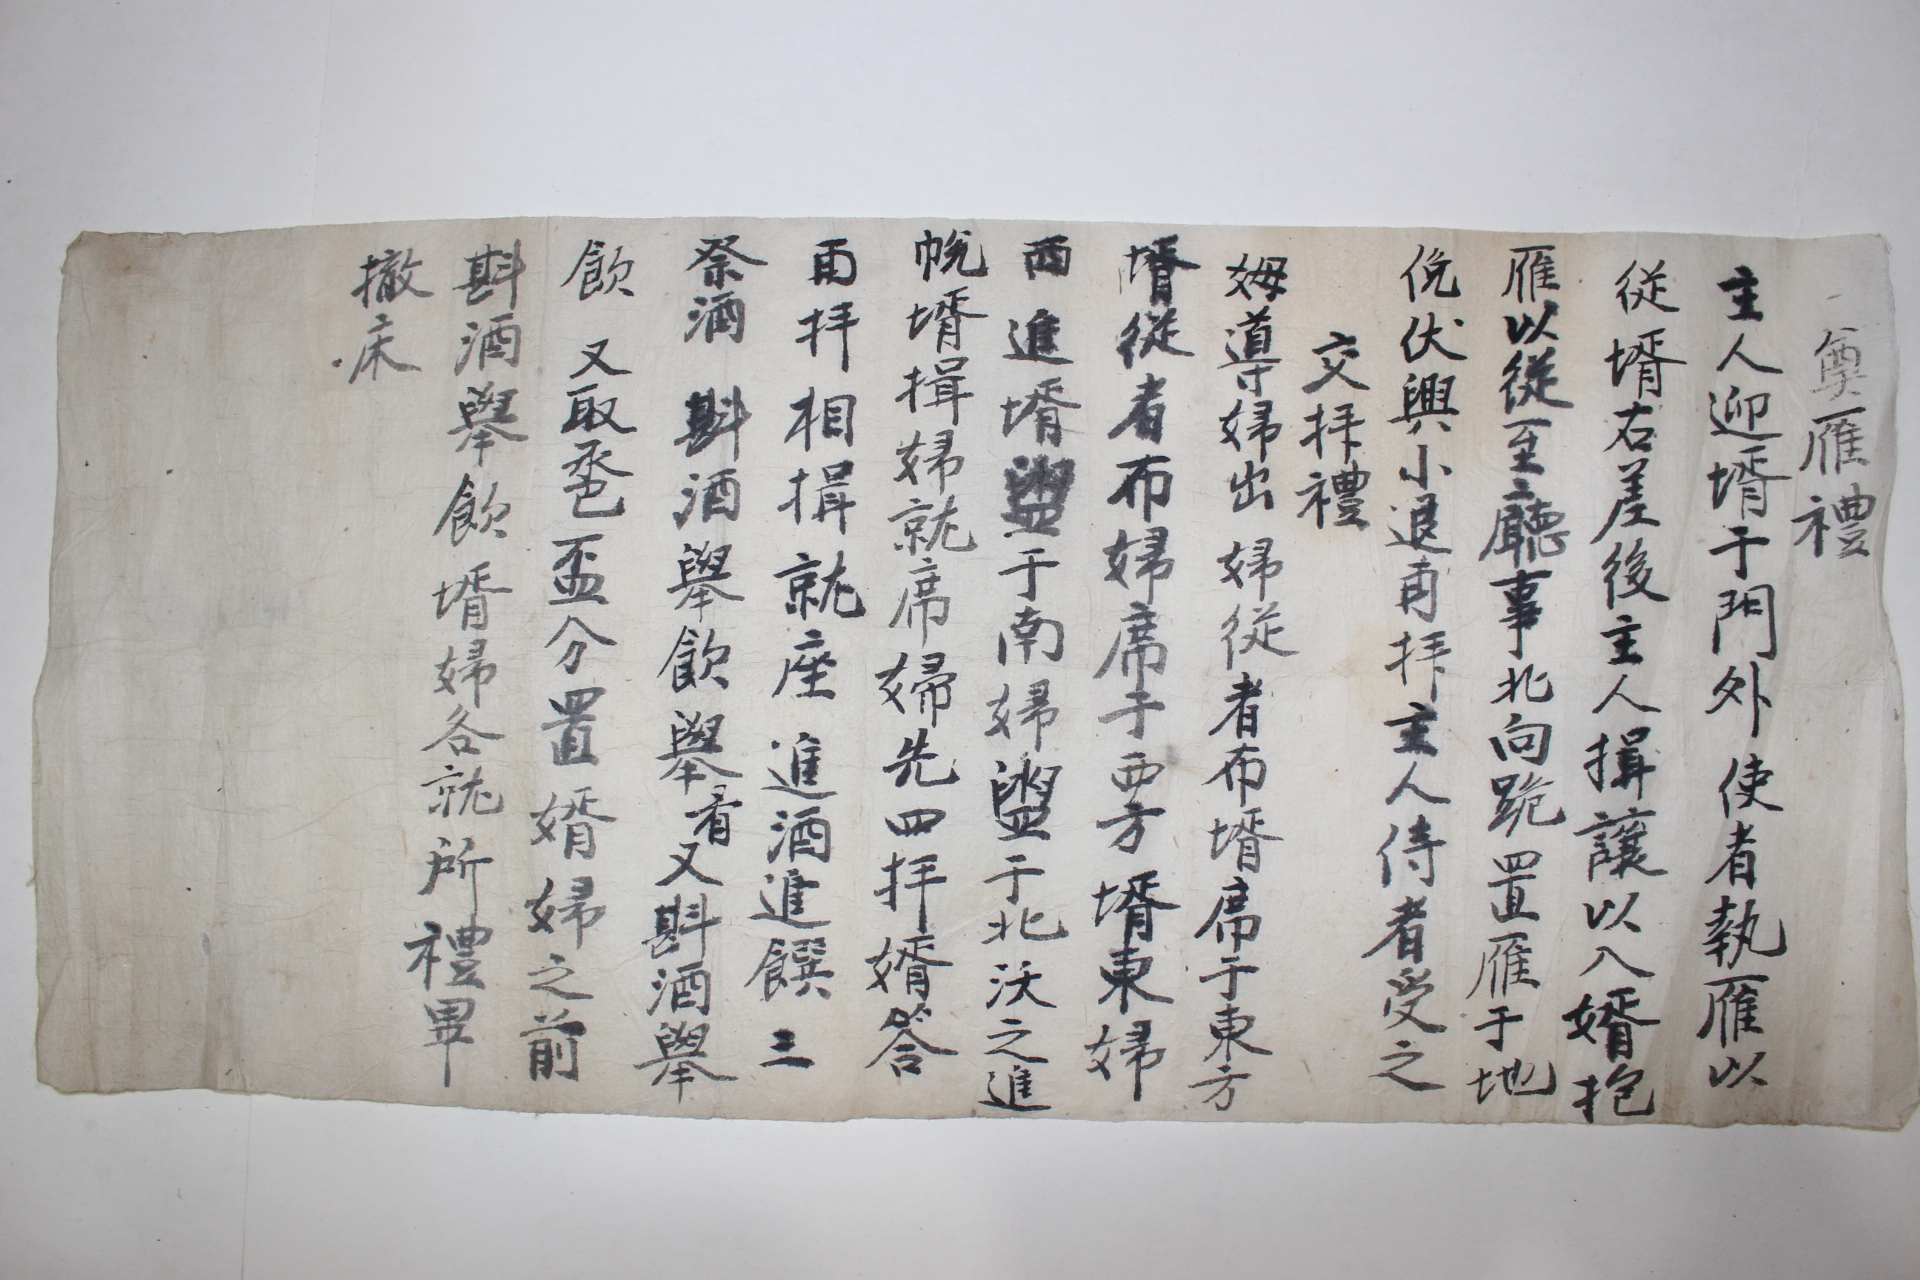 奠雁禮
主人迎壻于門外使者執雁以
從壻右差後主人揖讓以入婿抱
雁以從至廳事北向跪置雁于地
俛伏興小退再拜主人侍者受之
交拜禮
姆導婦出婦從者布壻席于東方
壻從者布婦席于西方壻東婦
西進壻盥于南婦盥于北沃之進
帨壻揖婦就席婦先四拜婿答
再拜相揖就座進酒進饌三
祭酒斟酒擧飮擧肴又斟酒擧
飮又取卺盃分置婿婦之前
斟酒擧飮壻婦各就所禮畢
撤床